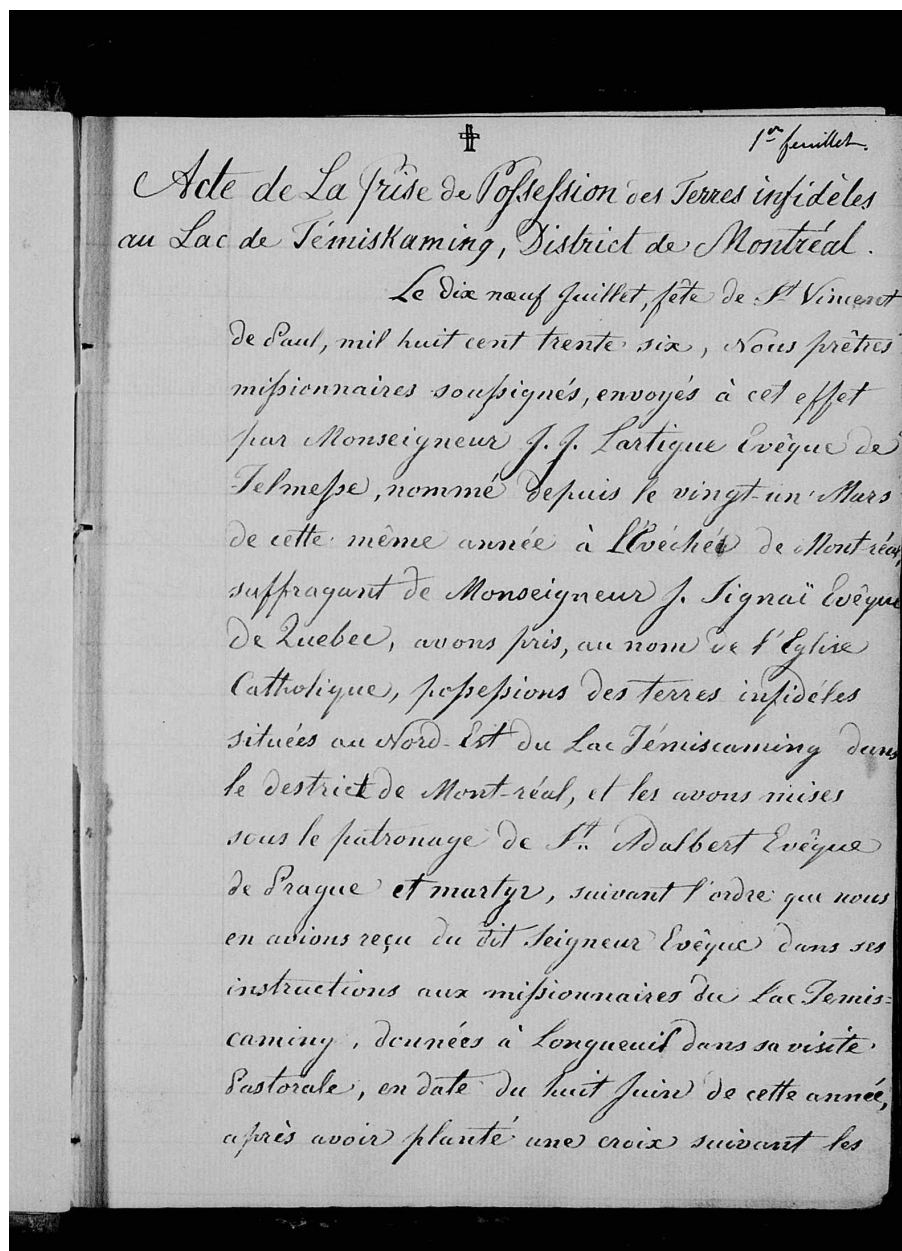 1er feuillet.
Acte de La Prise de Possession des Terres infidèles
au Lac de Témiskaming, District de Montréal.
Le dix neuf Juillet, fête de St Vincent
de Paul, mil huit cent trente six, Nous prêtres
missionnaires soussignés, envoyés à cet effet
par Monseigneur J. J. Lartigue Evêque de
Telmesse, nommé depuis le vingt-un Mars
de cette même année à l'Evéché de Mont-réal,
suffragant de Monseigneur J. Signaï Evêque
de Quebec, avons pris, au nom de l'Eglise
Catholique, possessions des terres infidéles
situées au Nord-Est du Lac Témiscaming dans
le destrict de Mont-réal, et les avons mises
sous le patronage de St. Adalbert Evêque
de Prague et martyr, suivant l'ordre que nous
en avions reçu du dit Seigneur Evêque dans ses
instructions aux missionnaires du Lac Temis=
caming, données à Longueuil dans sa visite
Pastorale, en date du huit Juin de cette année,
après avoir planté une croix suivant les